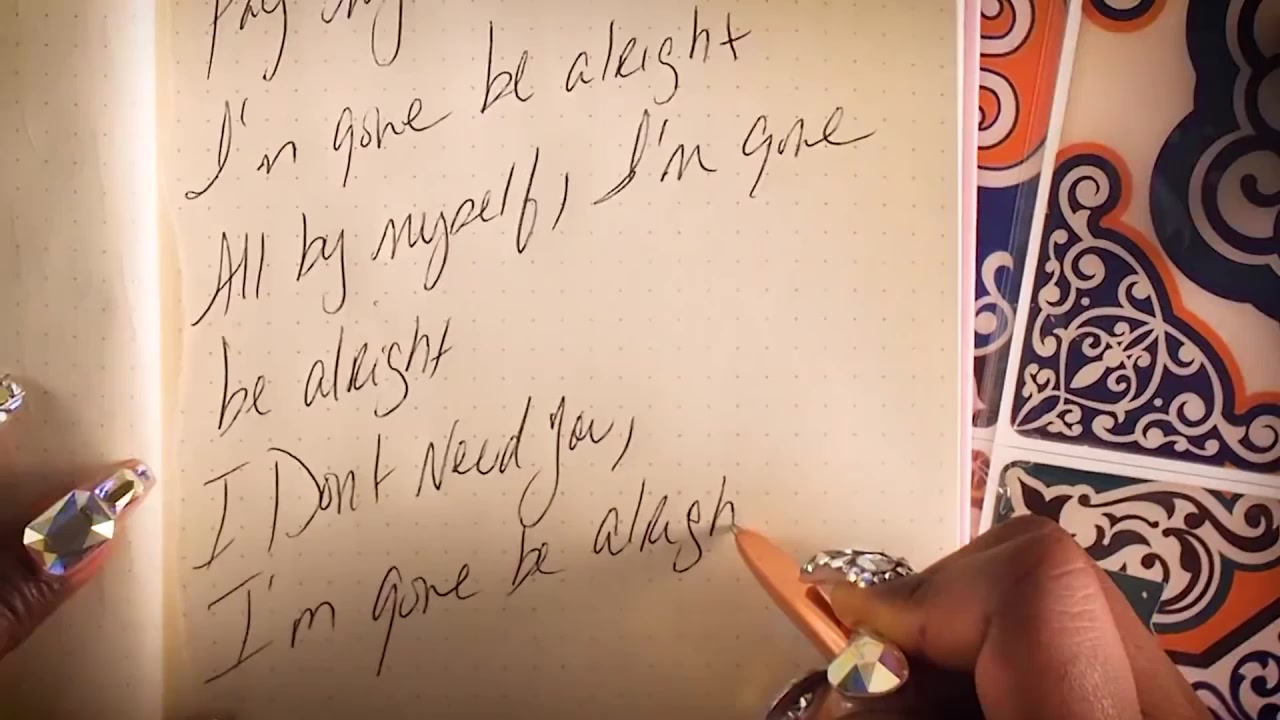 Pay my
I'm gone be alright
All by myself, I'm gone
be alright
I Dont Need you,
I'm gone be alrigh